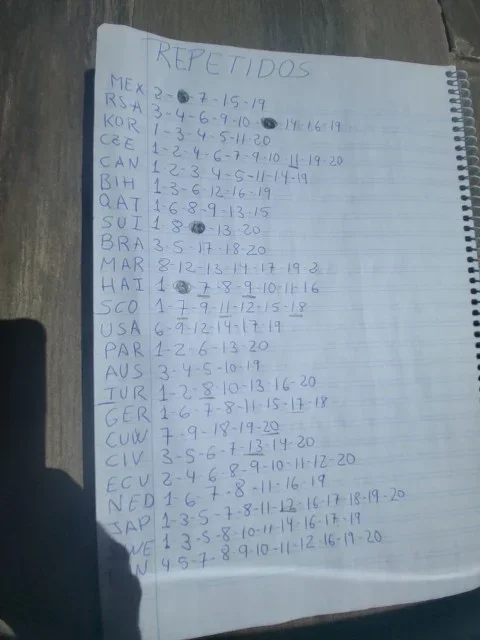 REPETIDOS
MEX 2-7-15-19
RSA 3-4-6-9-10-14-16-19
KOR 1-3-4-5-11-20
CZE 1-2-4-6-7-9-10 11-19-20
CAN 1 2-3 4-5-11-14-19
BIH 1-3-6 12-16-19
QAT 1-6-8-9-13-15
SUI 1 8-13-20
BRA 3-5-17-18-20
MAR 8-12-13-14-17 19 2
HAI 1 7-8-9-10-11-16
SCO 1-7-9-11-12-15-18
USA 6-9-12-14-17-19
PAR 1-2-6-13-20
AUS 3-4-5-10-19
TUR 1-2-8-10-13-16-20
GER 1-6-7-8-11-15-17-18
CUW 7-9-18-19-20
CIV 3-5-6-7-13-14-20
ECU 2-4-6-8-9-10-11-12-20
NED 1-6-7-8-11-16-19
JAP 1-3-5-7-8-11-12-16-17-18-19-20
WE 1 3-5-8 10-11-14-16-17-19
N 4 5-7-8-9-10-11-12-16-19-20